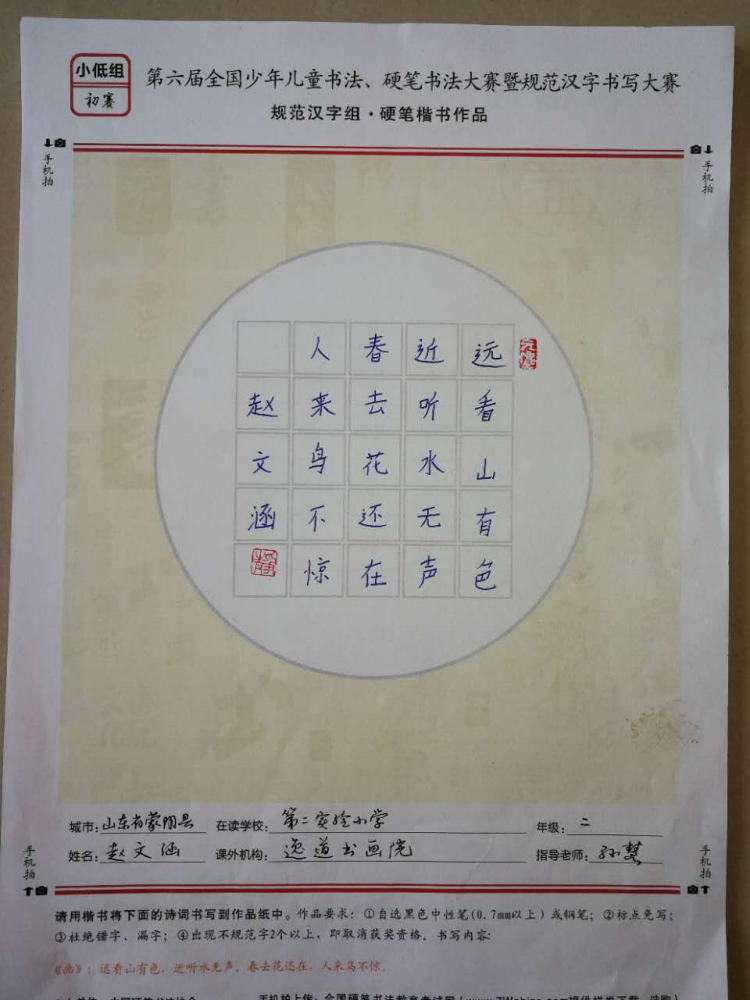 小低组
初赛
第六届全国少年儿童书法、硬笔书法大赛暨规范汉字书写大赛
规范汉字组·硬笔楷书作品
手机拍
手机拍
远看山有色
近听水无声
春去花还在
人来鸟不惊
赵文涵
城市：山东省蒙阴县 在读学校：第二实验小学 年级：二
姓名：赵文涵 课外机构：逸道书画院 指导老师：孙慧
手机拍
手机拍
请用楷书将下面的诗词书写到作品纸中。作品要求：①自选黑色中性笔(0.7mm以上)或钢笔；②标点免写；
③杜绝错字、漏字；④出现不规范字2个以上，即取消获奖资格。书写内容：
《画》：远看山有色，近听水无声。春去花还在，人来鸟不惊。